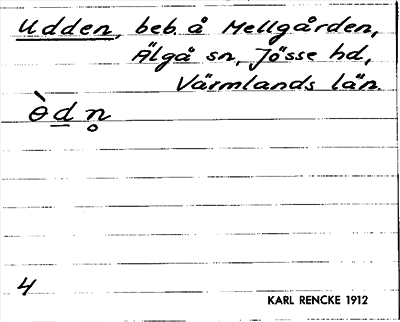 Udden, beb. å Mellgården,
Älgå sn, Jösse hd,
Värmlands län.
ɵ̀d̲n̥
4
KARL RENCKE 1912